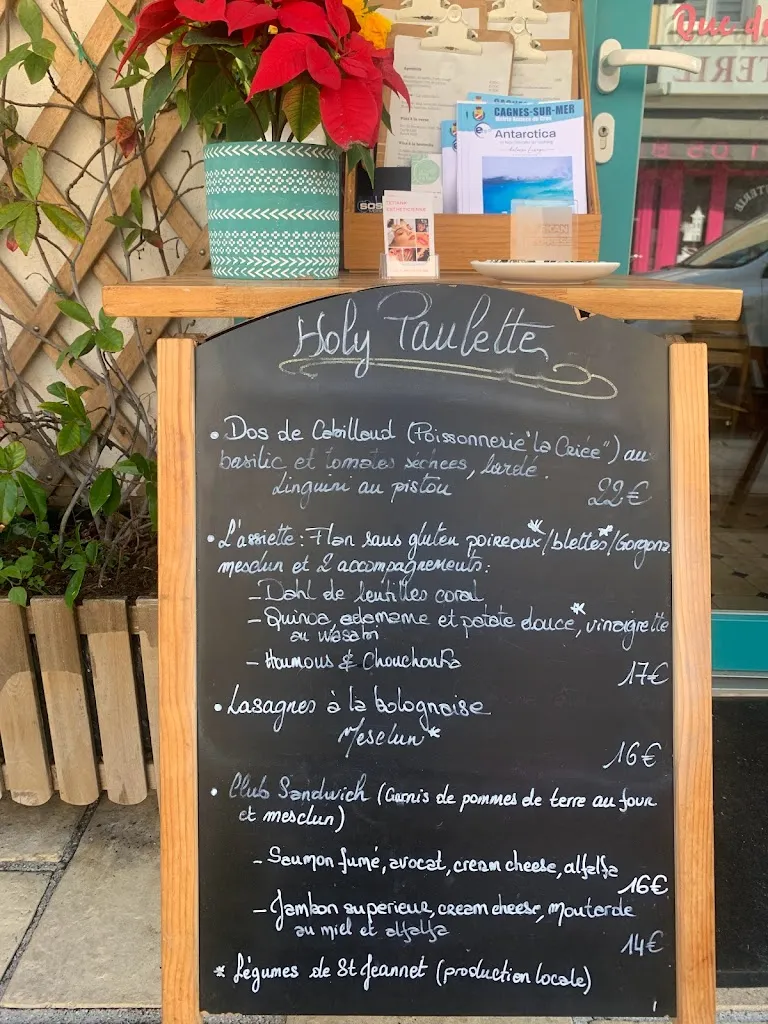 Que du
TERIE
CAGNES-SUR-MER
Antarctica
SOS
Holy Paulette
• Dos de Cabillaud (Poissonnerie "la Criée") au
basilic et tomates séchées, lardé.
Linguini au pistou
22€
• L'assiette : Flan sans gluten poireaux*/blettes*/Gorgonz
mesclun et 2 accompagnements :
- Dahl de lentilles corail
- Quinoa, edamame et patate douce*, vinaigrette
au wasabi
- Houmous & Chouchouka
17€
• Lasagnes à la bolognaise
Mesclun*
16€
• Club Sandwich (Garnis de pommes de terre au four
et mesclun)
- Saumon fumé, avocat, cream cheese, alfalfa
16€
- Jambon superieur, cream cheese, moutarde
au miel et alfalfa
14€
* Légumes de St Jeannet (production locale)